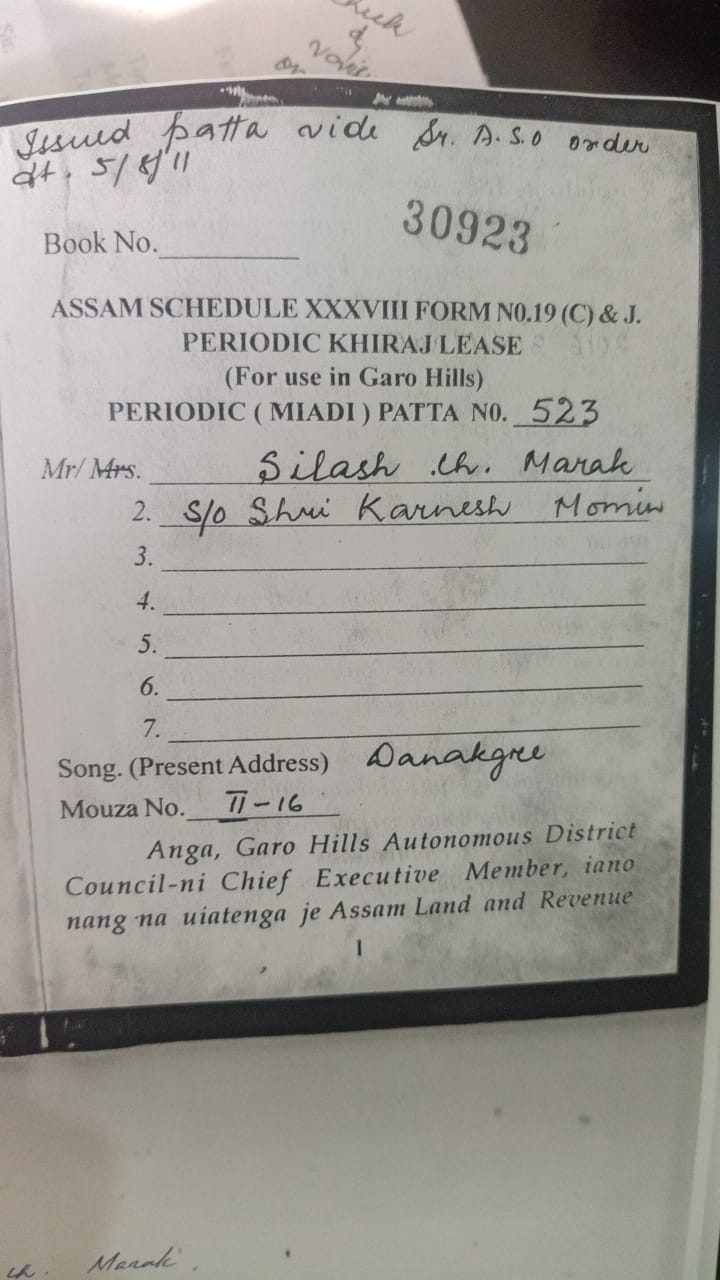 check
&
on
Issued patta vide Sr. A.S.O order
dt. 5/8/11
30923
Book No.
ASSAM SCHEDULE XXXVIII FORM N0.19 (C) & J.
PERIODIC KHIRAJ LEASE
(For use in Garo Hills)
PERIODIC ( MIADI ) PATTA N0. 523
Mr/ Mrs. Silash ch. Marak
2. S/o Shri Karnesh Momin
3.
4.
5.
6.
7.
Song. (Present Address) Danakgree
Mouza No. II-16
Anga, Garo Hills Autonomous District
Council-ni Chief Executive Member, iano
nang na uiatenga je Assam Land and Revenue
1
ch. Marak